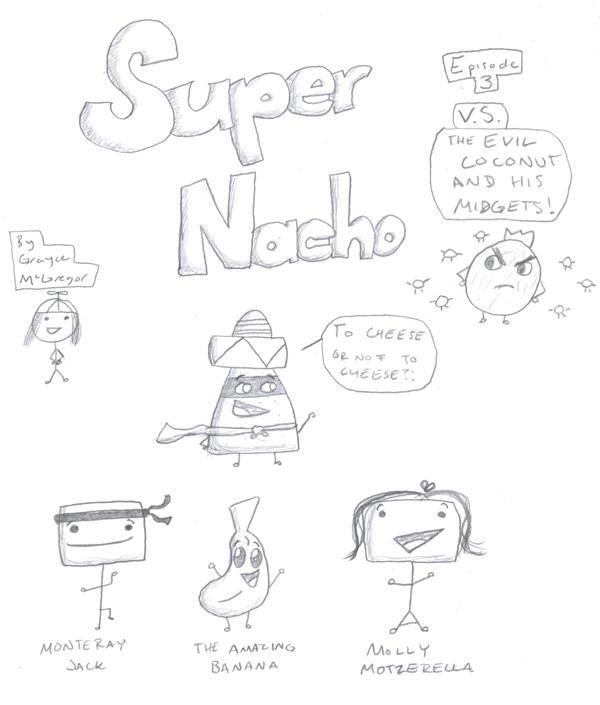 Super
Nacho
Episode
3
V.S.
THE EVIL
COCONUT
AND HIS
MIDGETS!
By
Grayce
McGregor
TO CHEESE
OR NOT TO
CHEESE?!
MONTERAY
JACK
THE AMAZING
BANANA
MOLLY
MOTZERELLA